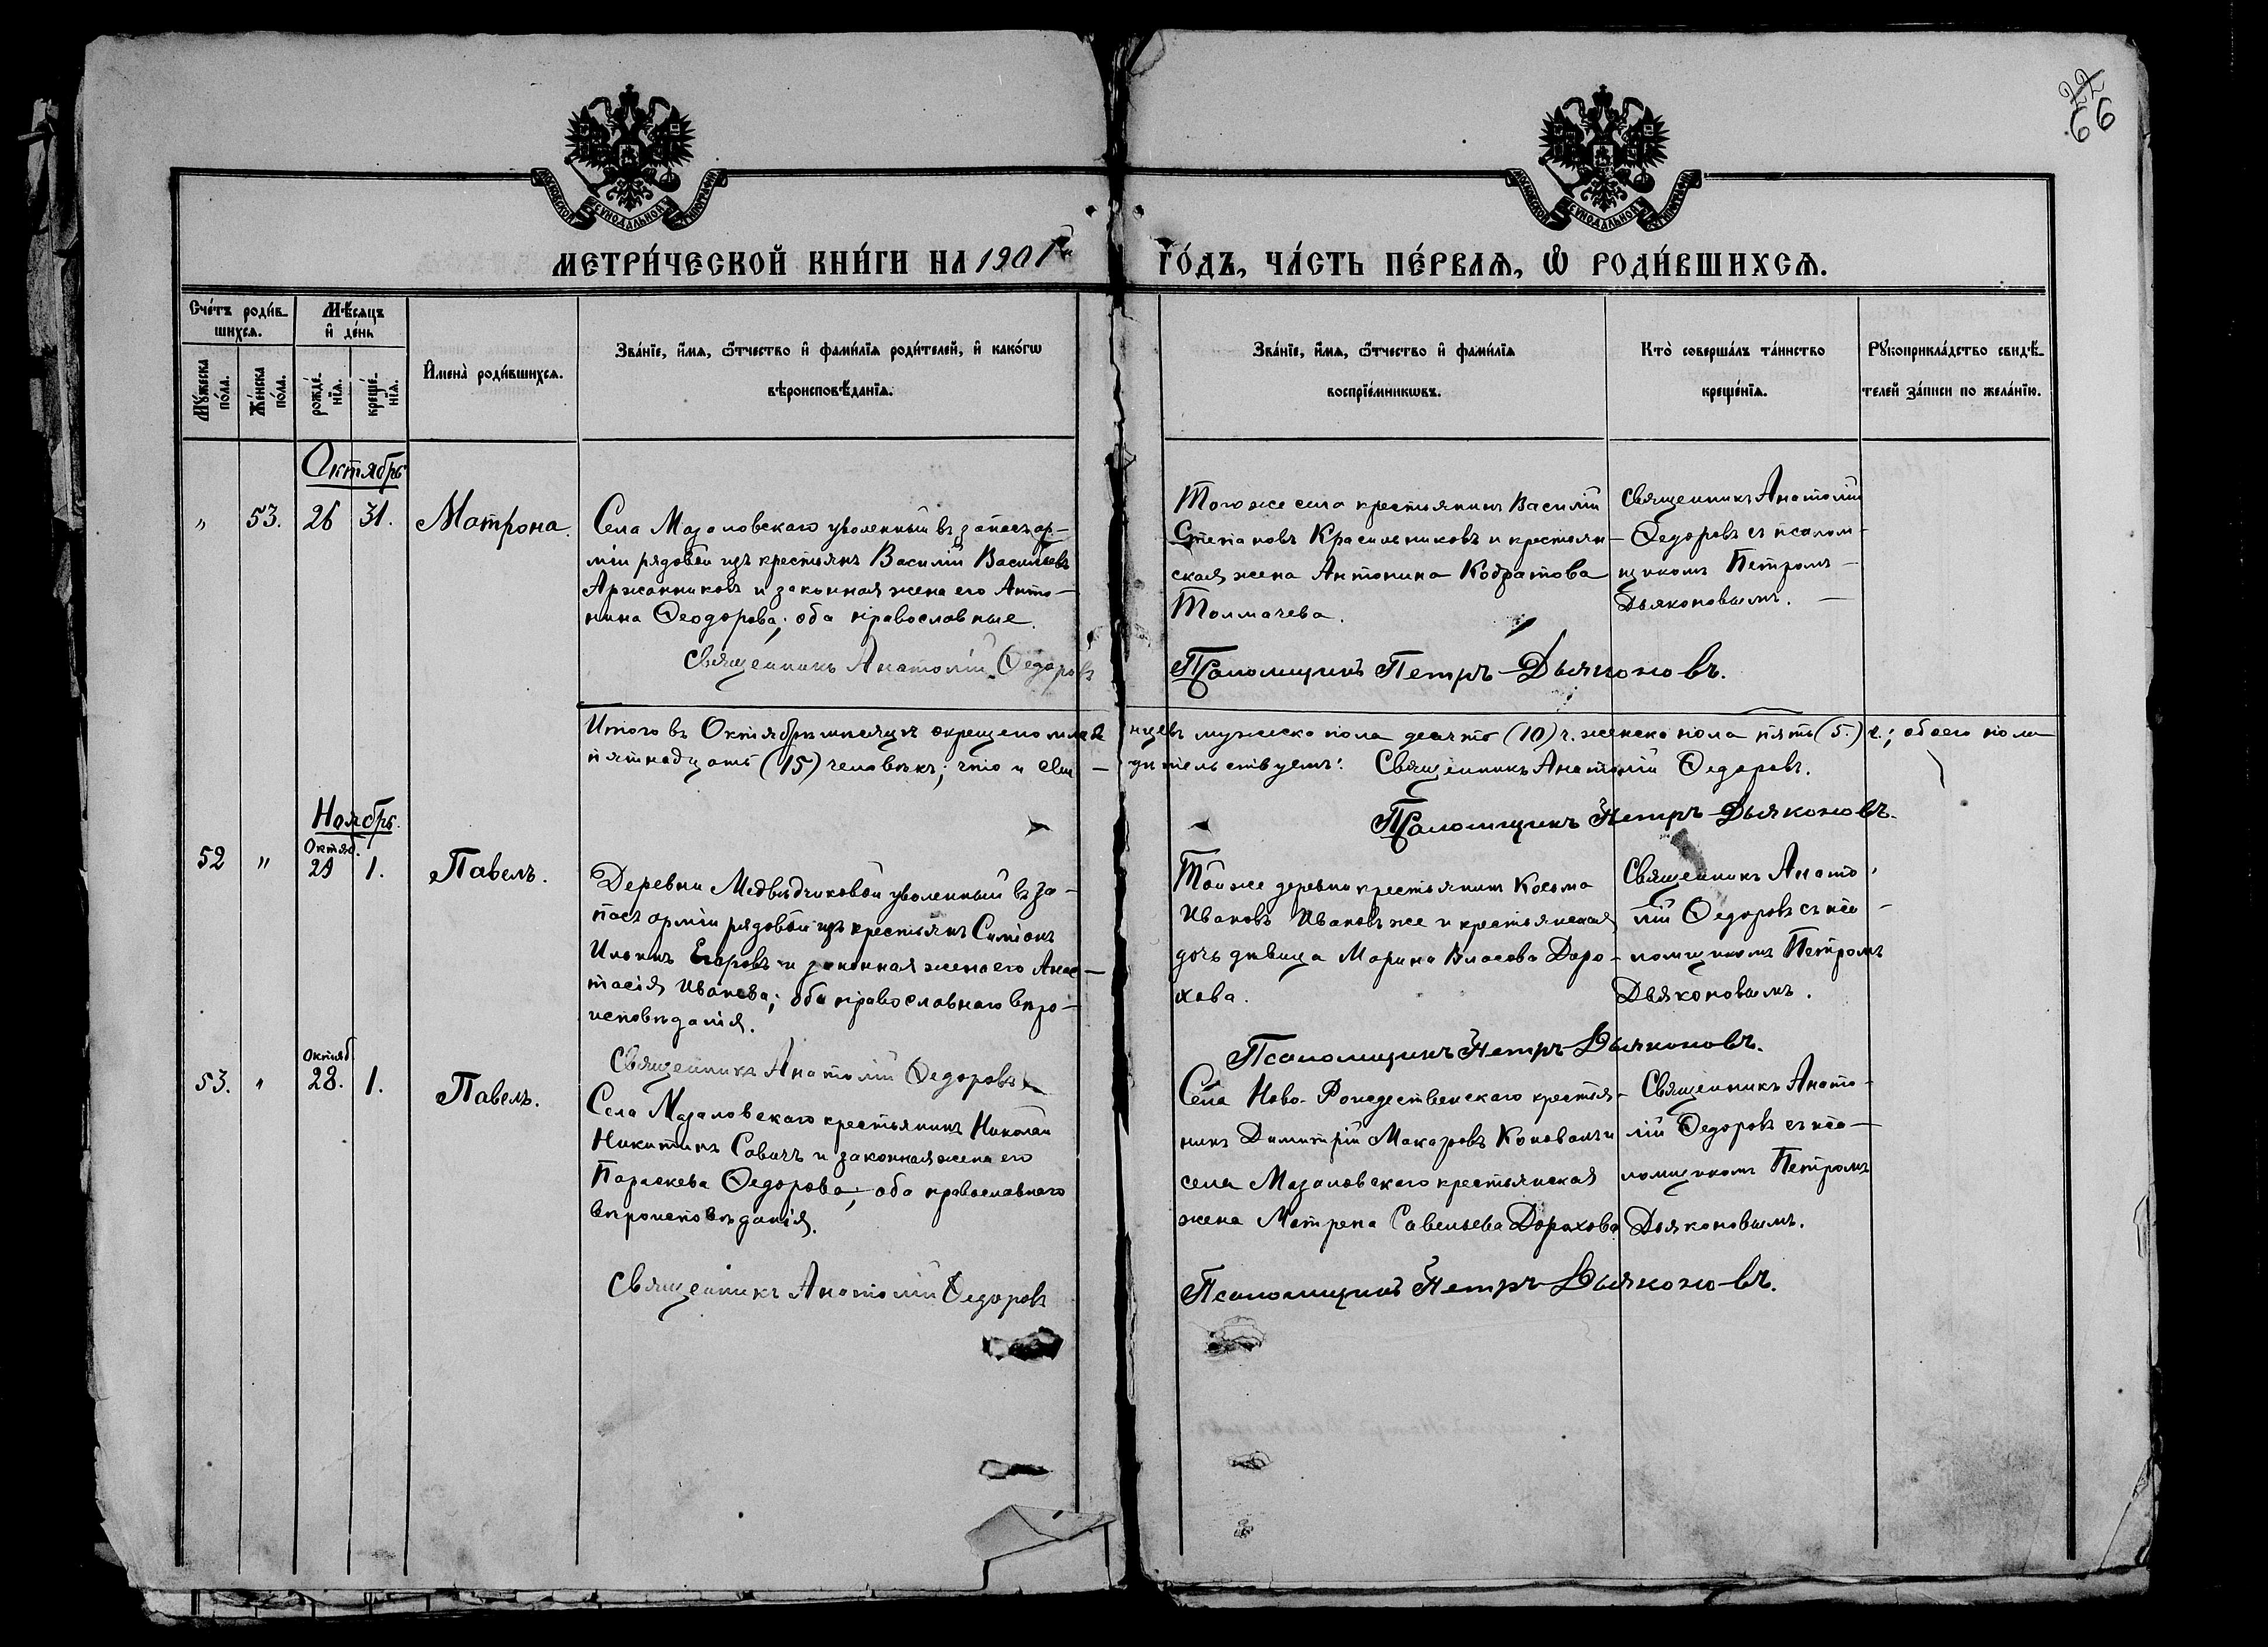 22
66
МОСКОВСКОЙ СУНОДАЛЬНОЙ ТИПОГРАФІИ
МОСКОВСКОЙ СУНОДАЛЬНОЙ ТИПОГРАФІИ
МЕТРИ́ЧЕСКОЙ КНИ́ГИ НА 1901 ГО́ДЪ, ЧА́СТЬ ПЕ́РВАѦ, Ѡ РОДИ́ВШИХСѦ.
Сче́тъ роди́в-
шихсѧ.
Мѣ́сѧцъ
и҆ де́нь
Мꙋ́жеска
по́ла.
Же́нска
по́ла.
рожде́-
нїѧ.
креще́-
нїѧ.
И҆мена̀ роди́вшихсѧ.
Зва́нїе, и҆́мѧ, ѻ҆́тчество и҆ фами́лїѧ роди́телей, и҆ како́гѡ
вѣроисповѣ́данїѧ.
Зва́нїе, и҆́мѧ, ѻ҆́тчество и҆ фами́лїѧ
воспрїе́мникѡвъ.
Кто̀ соверша́лъ та́инство
креще́нїѧ.
Рꙋкоприкла́дство свидѣ́-
телей за́писи по жела́нїю.
Октябрь
„ 53. 26 31. Матрона.
Села Мазаловскаго уволенный въ запасъ ар-
міи рядовой изъ крестьянъ Василій Васильевъ
Аржанниковъ и законная жена его Анто-
нина Ѳеодорова; оба православные.
Священникъ Анатолій Ѳедоровъ
Того же села крестьянинъ Василій
Степановъ Красильниковъ и крестьян-
ская жена Антонина Кодратова
Толмачева.
Священникъ Анатолій
Ѳедоровъ съ псалом-
щикомъ Петромъ
Дьяконовымъ.
Псаломщикъ Петръ Дьяконовъ.
Итого въ Октябрѣ мѣсяцѣ окрещено младенцевъ мужеска пола десять (10) ч. женска пола пять (5.) ч.; обоего пола
пятнадцать (15) человѣкъ; что и сви-дительствуемъ: Священникъ Анатолій Ѳедоровъ.
Псаломщикъ Петръ Дьяконовъ.
Ноябрь.
Октяб.
52 „ 29 1. Павелъ.
Деревни Медвѣдчиковой уволенный въ за-
пасъ арміи рядовой изъ крестьянъ Симіонъ
Ильинъ Егоровъ и законная жена его Анас-
тасія Иванова; оба православнаго вѣро-
исповѣданія.
Священникъ Анатолій Ѳедоровъ
Той же деревни крестьянинъ Косьма
Ивановъ Ивановъ же и крестьянская
дочь дѣвица Марина Власова Доро-
хова.
Священникъ Анато-
лій Ѳедоровъ съ пса-
ломщикомъ Петромъ
Дьяконовымъ.
Псаломщикъ Петръ Дьяконовъ.
Октяб.
53. „ 28. 1. Павелъ.
Села Мазаловскаго крестьянинъ Николай
Никитинъ Савичъ и законная жена его
Параскева Ѳедорова; оба православнаго
вѣроисповѣданія.
Священникъ Анатолій Ѳедоровъ
Села Ново-Рождественскаго крестья-
нинъ Димитрій Макаровъ и
села Мазаловскаго крестьянская
жена Матрена Савельева Дорохова
Священникъ Анато-
лій Ѳедоровъ съ пса-
ломщикомъ Петромъ
Дьяконовымъ.
Псаломщикъ Петръ Дьяконовъ.